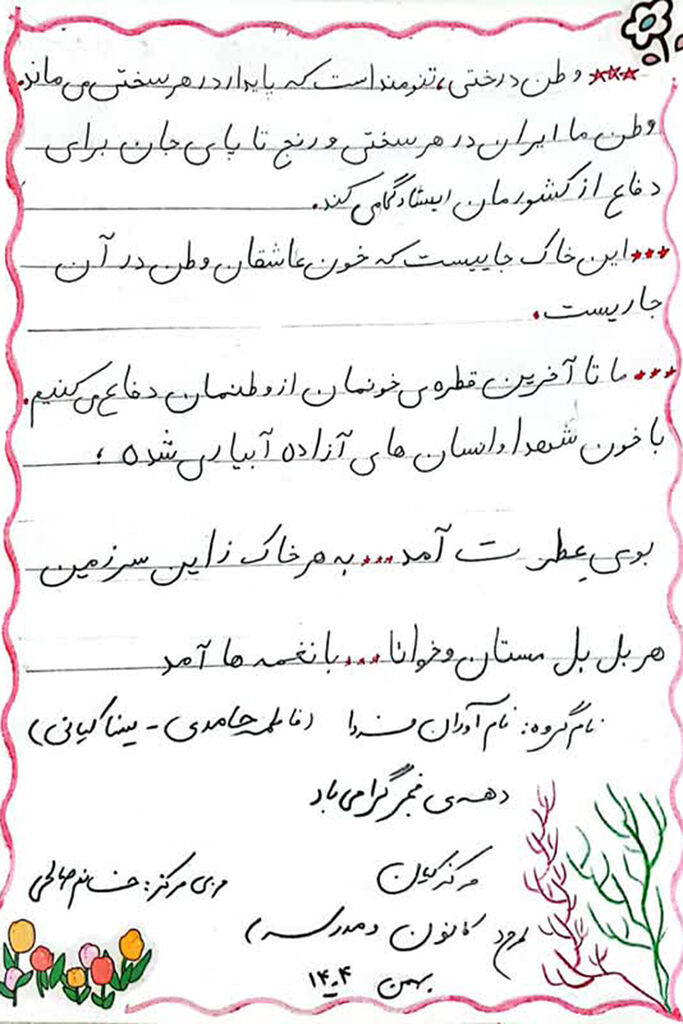 *** وطن درختی، تنومند است که پایدار در هر سختی می ماند.
وطن ما ایران در هر سختی و رنج تا پای جان برای
دفاع از کشورمان ایستادگی می کند.
*** این خاک جاییست که خون عاشقان وطن در آن
جاریست.
*** ما تا آخرین قطره ی خونمان از وطنمان دفاع می کنیم.
با خون شهدا و انسان های آزاده آبیاری شده ؛
بوی عطرت آمد *** به هر خاک ز این سرزمین
هر بل بل مستان و خوانا *** با نغمه ها آمد
نام گروه: نام آوران فردا (فاطمه حامدی - یسنا کیانی)
دهه ی فجر گرامی باد
مرکز کیان
مربی مرکز: خانم صالحی
کانون و مدرسه)
بهمن ۱۴۰۴